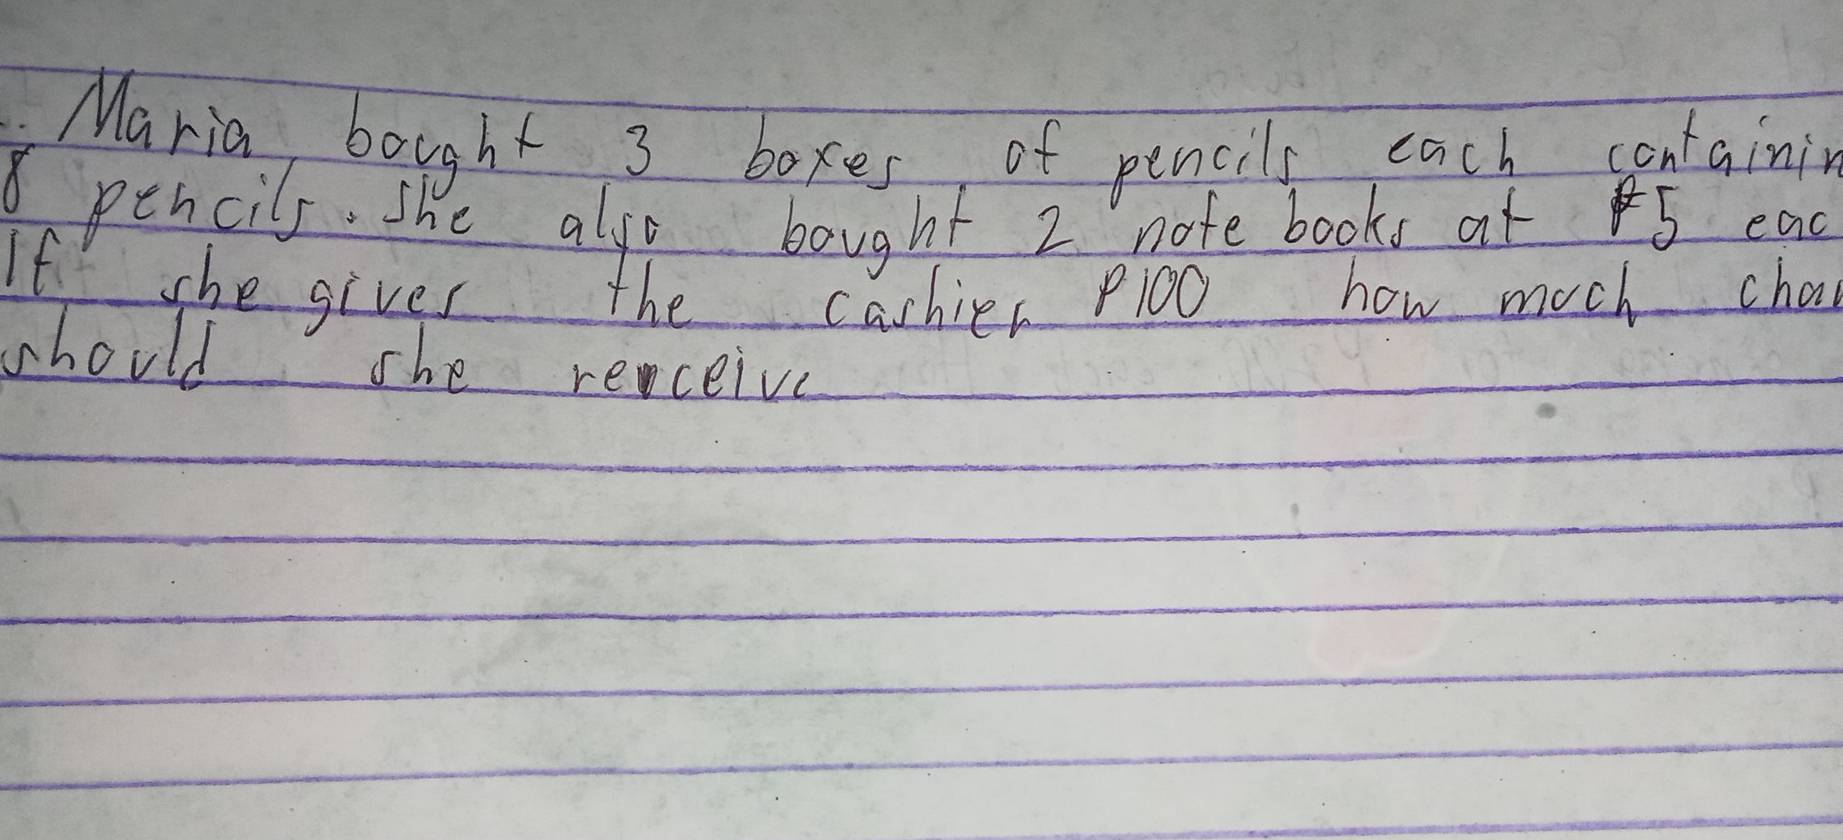 Maria bought 3 boxes of pencils each containin
8 pencils. She also bought 2 note books at ₱5 eac
If she gives the cashier P100 how much chan
should she renceive